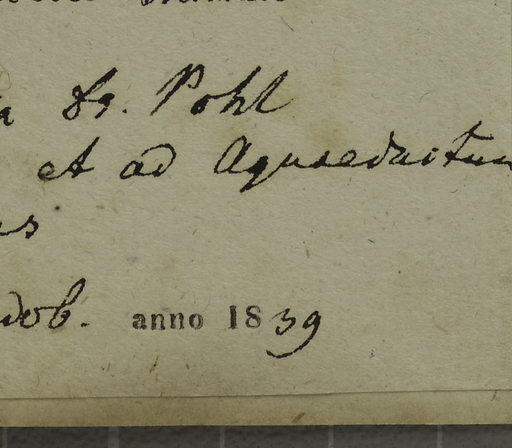 Dr. Pohl
et ad Aquaeductum
dob. anno 1839